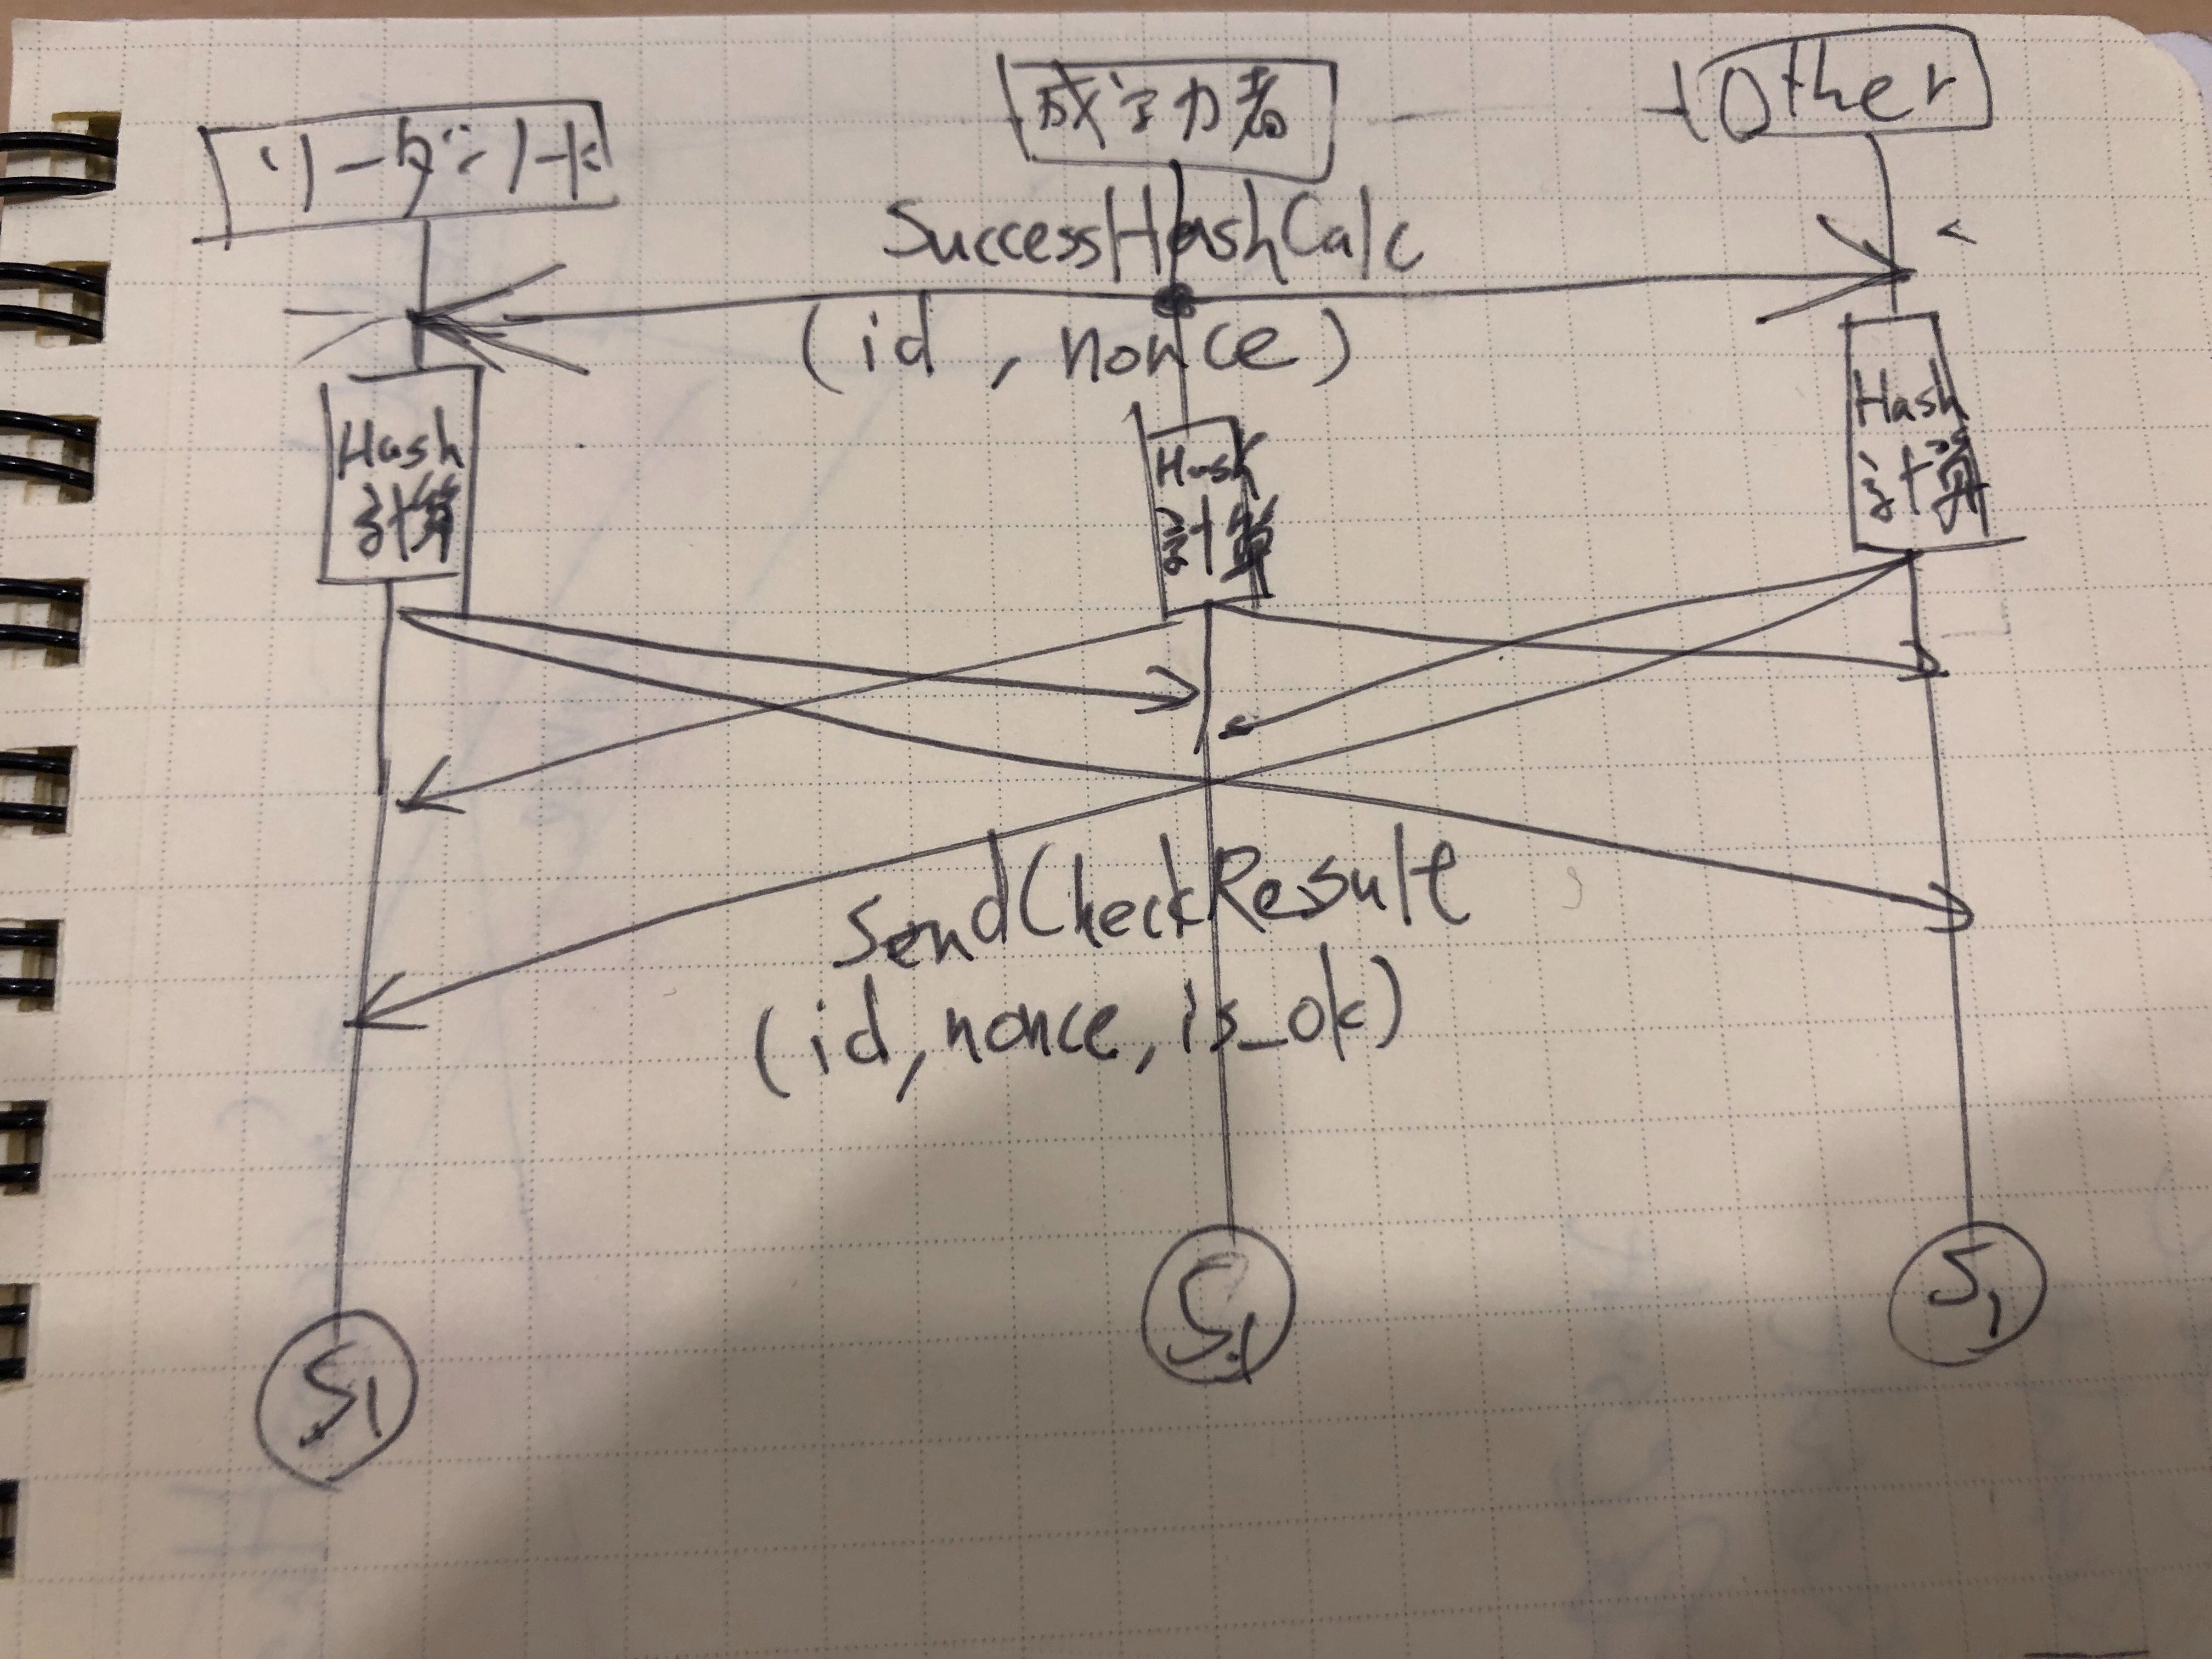 リーダーノード
成功者
Other
SuccessHashCalc
(id, nonce)
Hash
計算
Hash
計算
Hash
計算
SendCheckResult
(id, nonce, is_ok)
S1
S1
S1